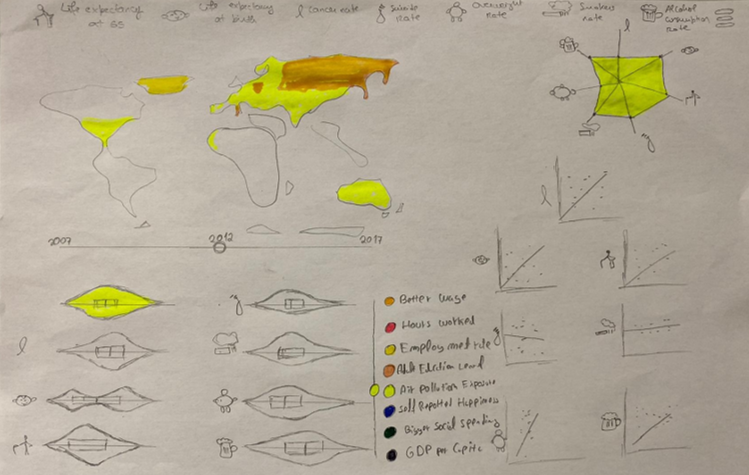 Life expectancy at 65
Life expectancy at birth
Cancer rate
Suicide Rate
Overweight rate
Smokers rate
Alcohol Consumption Rate
2007
2012
2017
Better Wage
Hours worked
Employment rate
Adult Education Level
Air Pollution Exposure
Self Reported Happiness
Bigger Social spending
GDP per Capita